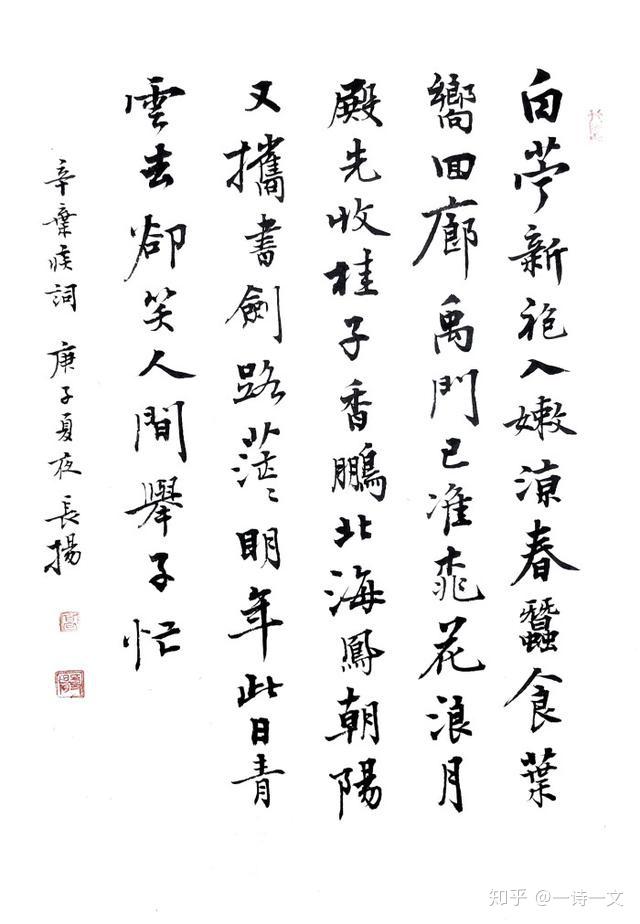 白苧新袍入嫩涼春蠶食葉
嚮回廊禹門已准桃花浪月
殿先收桂子香鵬北海鳳朝陽
又攜書劍路茫〻明年此日青
雲去卻笑人間舉子忙
辛棄疾詞 庚子夏夜 長揚
知乎 @一诗一文